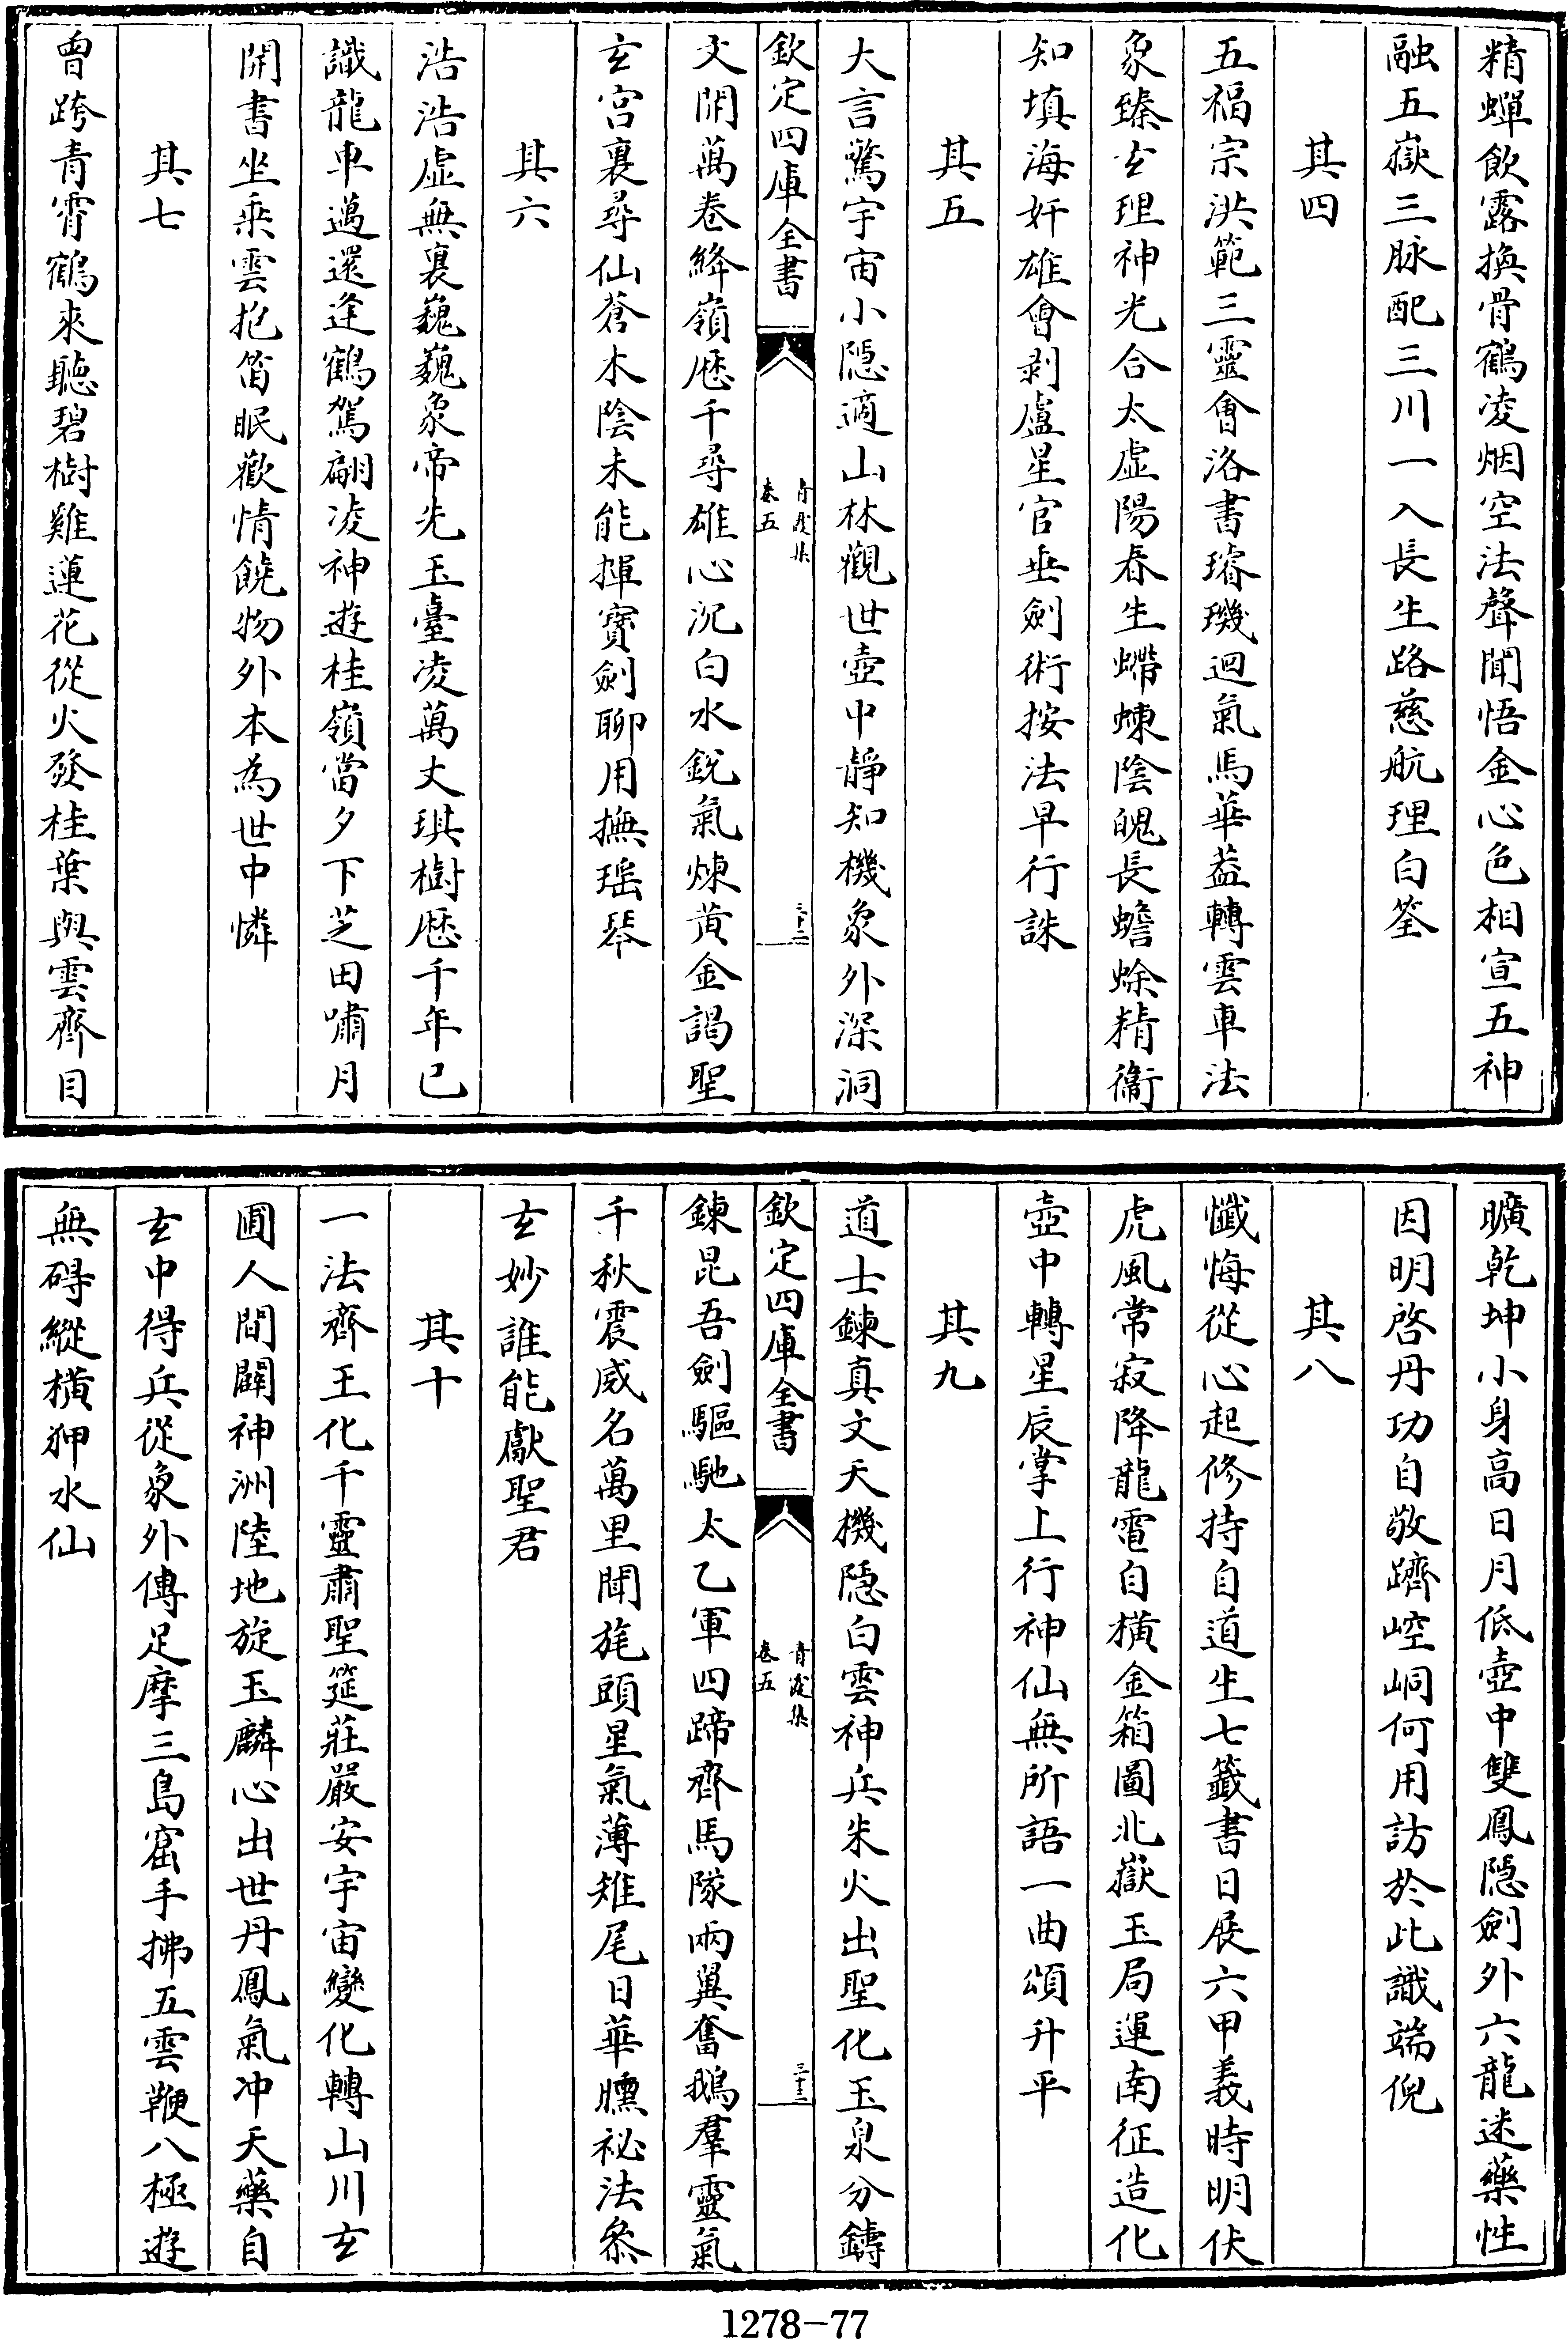 精蟬飲露換骨鶴凌烟空法聲聞悟金心色相宣五神
融五嶽三脉配三川一入長生路慈航理白筌
其四
五福宗洪範三靈會洛書璿璣迴氣馬華葢轉雲車法
象臻𤣥理神光合太虛陽春生螮蝀陰魄長蟾蜍精衞
知填海奸雄會剥盧星官垂劍術按法早行誅
其五
大言驚宇宙小隠適山林觀世壺中靜知機象外深洞
欽定四庫全書
青霞集
卷五
三十二
文開萬卷絳嶺厯千尋雄心沉白水鋭氣煉黄金謁聖
𤣥宮裏尋仙蒼木陰未能揮寳劍聊用撫瑶琴
其六
浩浩虛無裏巍巍象帝先玉臺凌萬丈琪樹厯千年已
識龍車邁還逢鶴駕翩凌神遊桂嶺當夕下芝田嘯月
開書坐乘雲抱笛眠歡情饒物外本為世中憐
其七
曾跨青霄鶴來聽碧樹雞蓮花從火發桂葉與雲齊目
曠乾坤小身高日月低壺中雙鳳隠劍外六龍迷藥性
因明啓丹功自敬躋崆峒何用訪於此識端倪
其八
懺悔從心起修持自道生七籤書日展六甲義時明伏
虎風常寂降龍電自横金箱圖北嶽玉局運南征造化
壺中轉星辰掌上行神仙無所語一曲頌升平
其九
道士鍊真文天機隠白雲神兵朱火出聖化玉泉分鑄
欽定四庫全書
青霞集
卷五
三十三
鍊昆吾劍驅馳太乙軍四蹄齊馬隊兩翼奮鵝羣靈氣
千秋震威名萬里聞旄頭星氣薄雉尾日華曛祕法叅
𤣥妙誰能獻聖君
其十
一法齊王化千靈肅聖筵莊嚴安宇宙變化轉山川𤣥
圃人間闢神洲陸地旋玉麟心出世丹鳳氣冲天藥自
𤣥中得兵從象外傳足摩三島窟手拂五雲鞭八極遊
無碍縱横狎水仙
1278-77